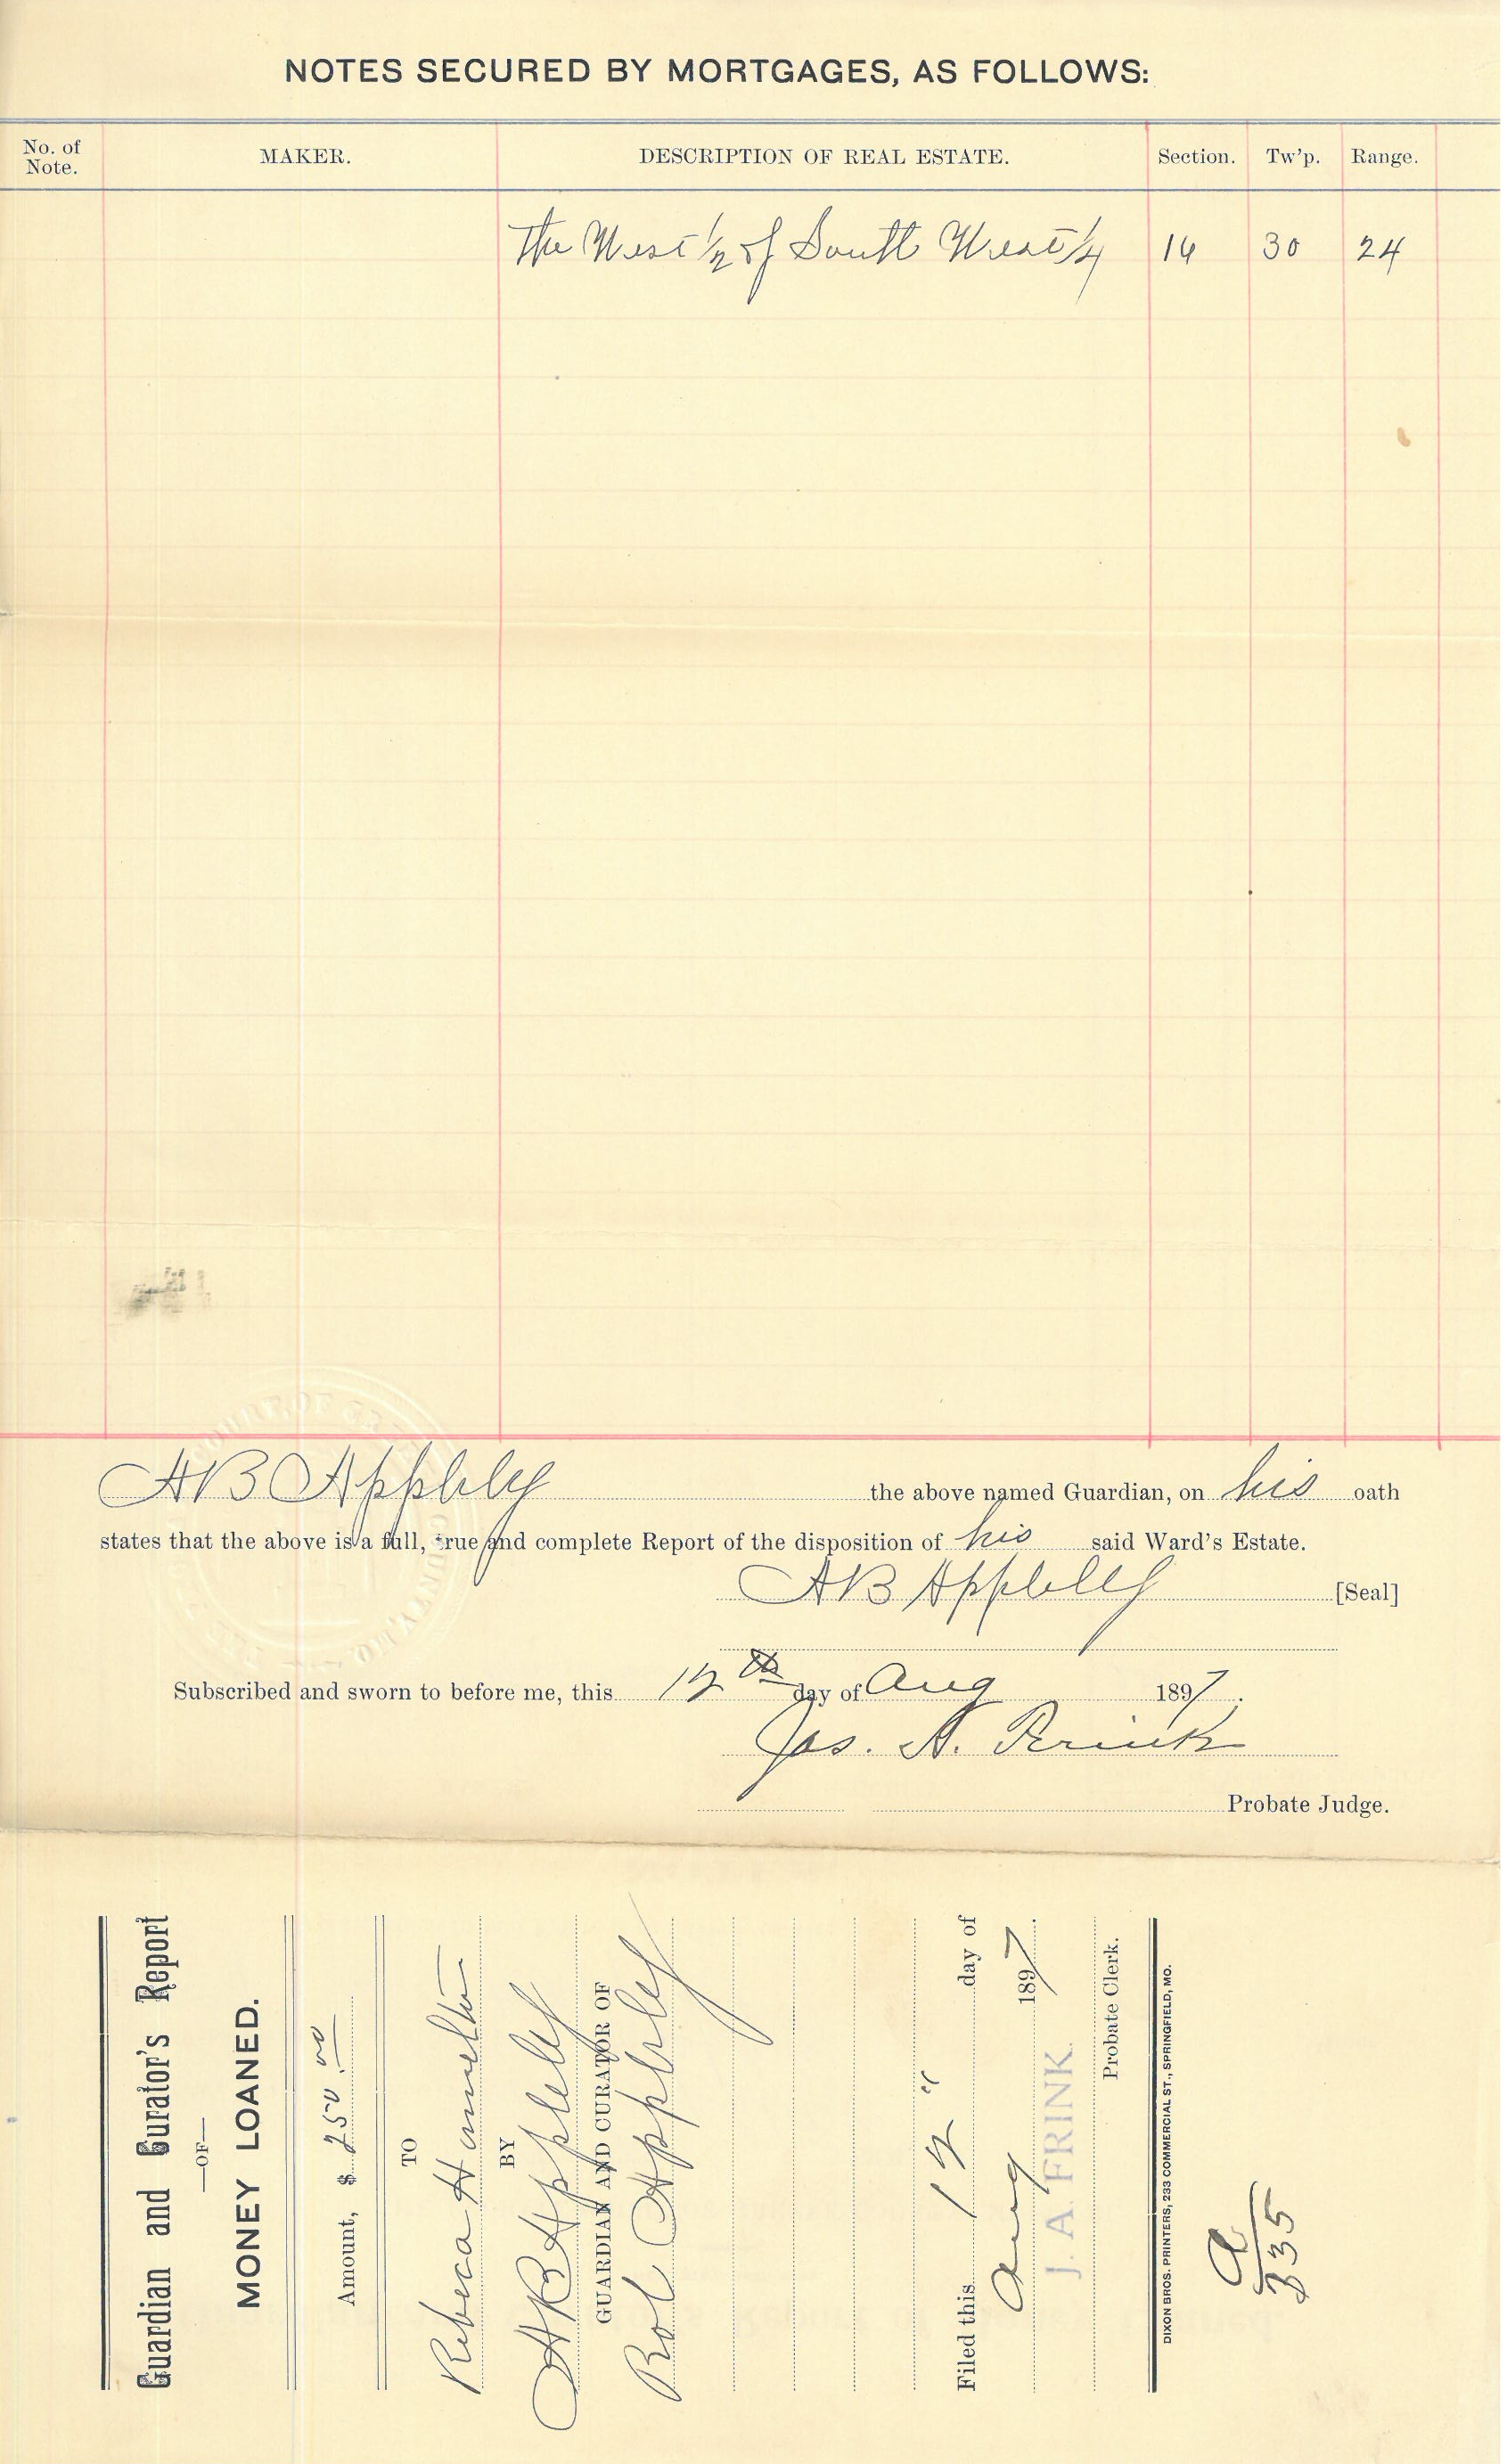 NOTES SECURED BY MORTGAGES, AS FOLLOWS:
No. of Note. MAKER. DESCRIPTION OF REAL ESTATE. Section. Tw'p. Range.
The West 1/2 of South West 1/4 14 30 24
AB Appleby the above named Guardian, on his oath
states that the above is a full, true and complete Report of the disposition of his said Ward's Estate.
AB Appleby [Seal]
Subscribed and sworn to before me, this 12th day of Aug 1897.
Jas. A. Frink
Probate Judge.
Guardian and Curator's Report
—OF—
MONEY LOANED.
Amount, $ 250.00
TO
Rebeca Hamelton
BY
AB Appleby
GUARDIAN AND CURATOR OF
Bol Appleby
Filed this 12 " day of
Aug 1897.
J. A. FRINK.
Probate Clerk.
DIXON BROS. PRINTERS, 233 COMMERCIAL ST., SPRINGFIELD, MO.
a
335